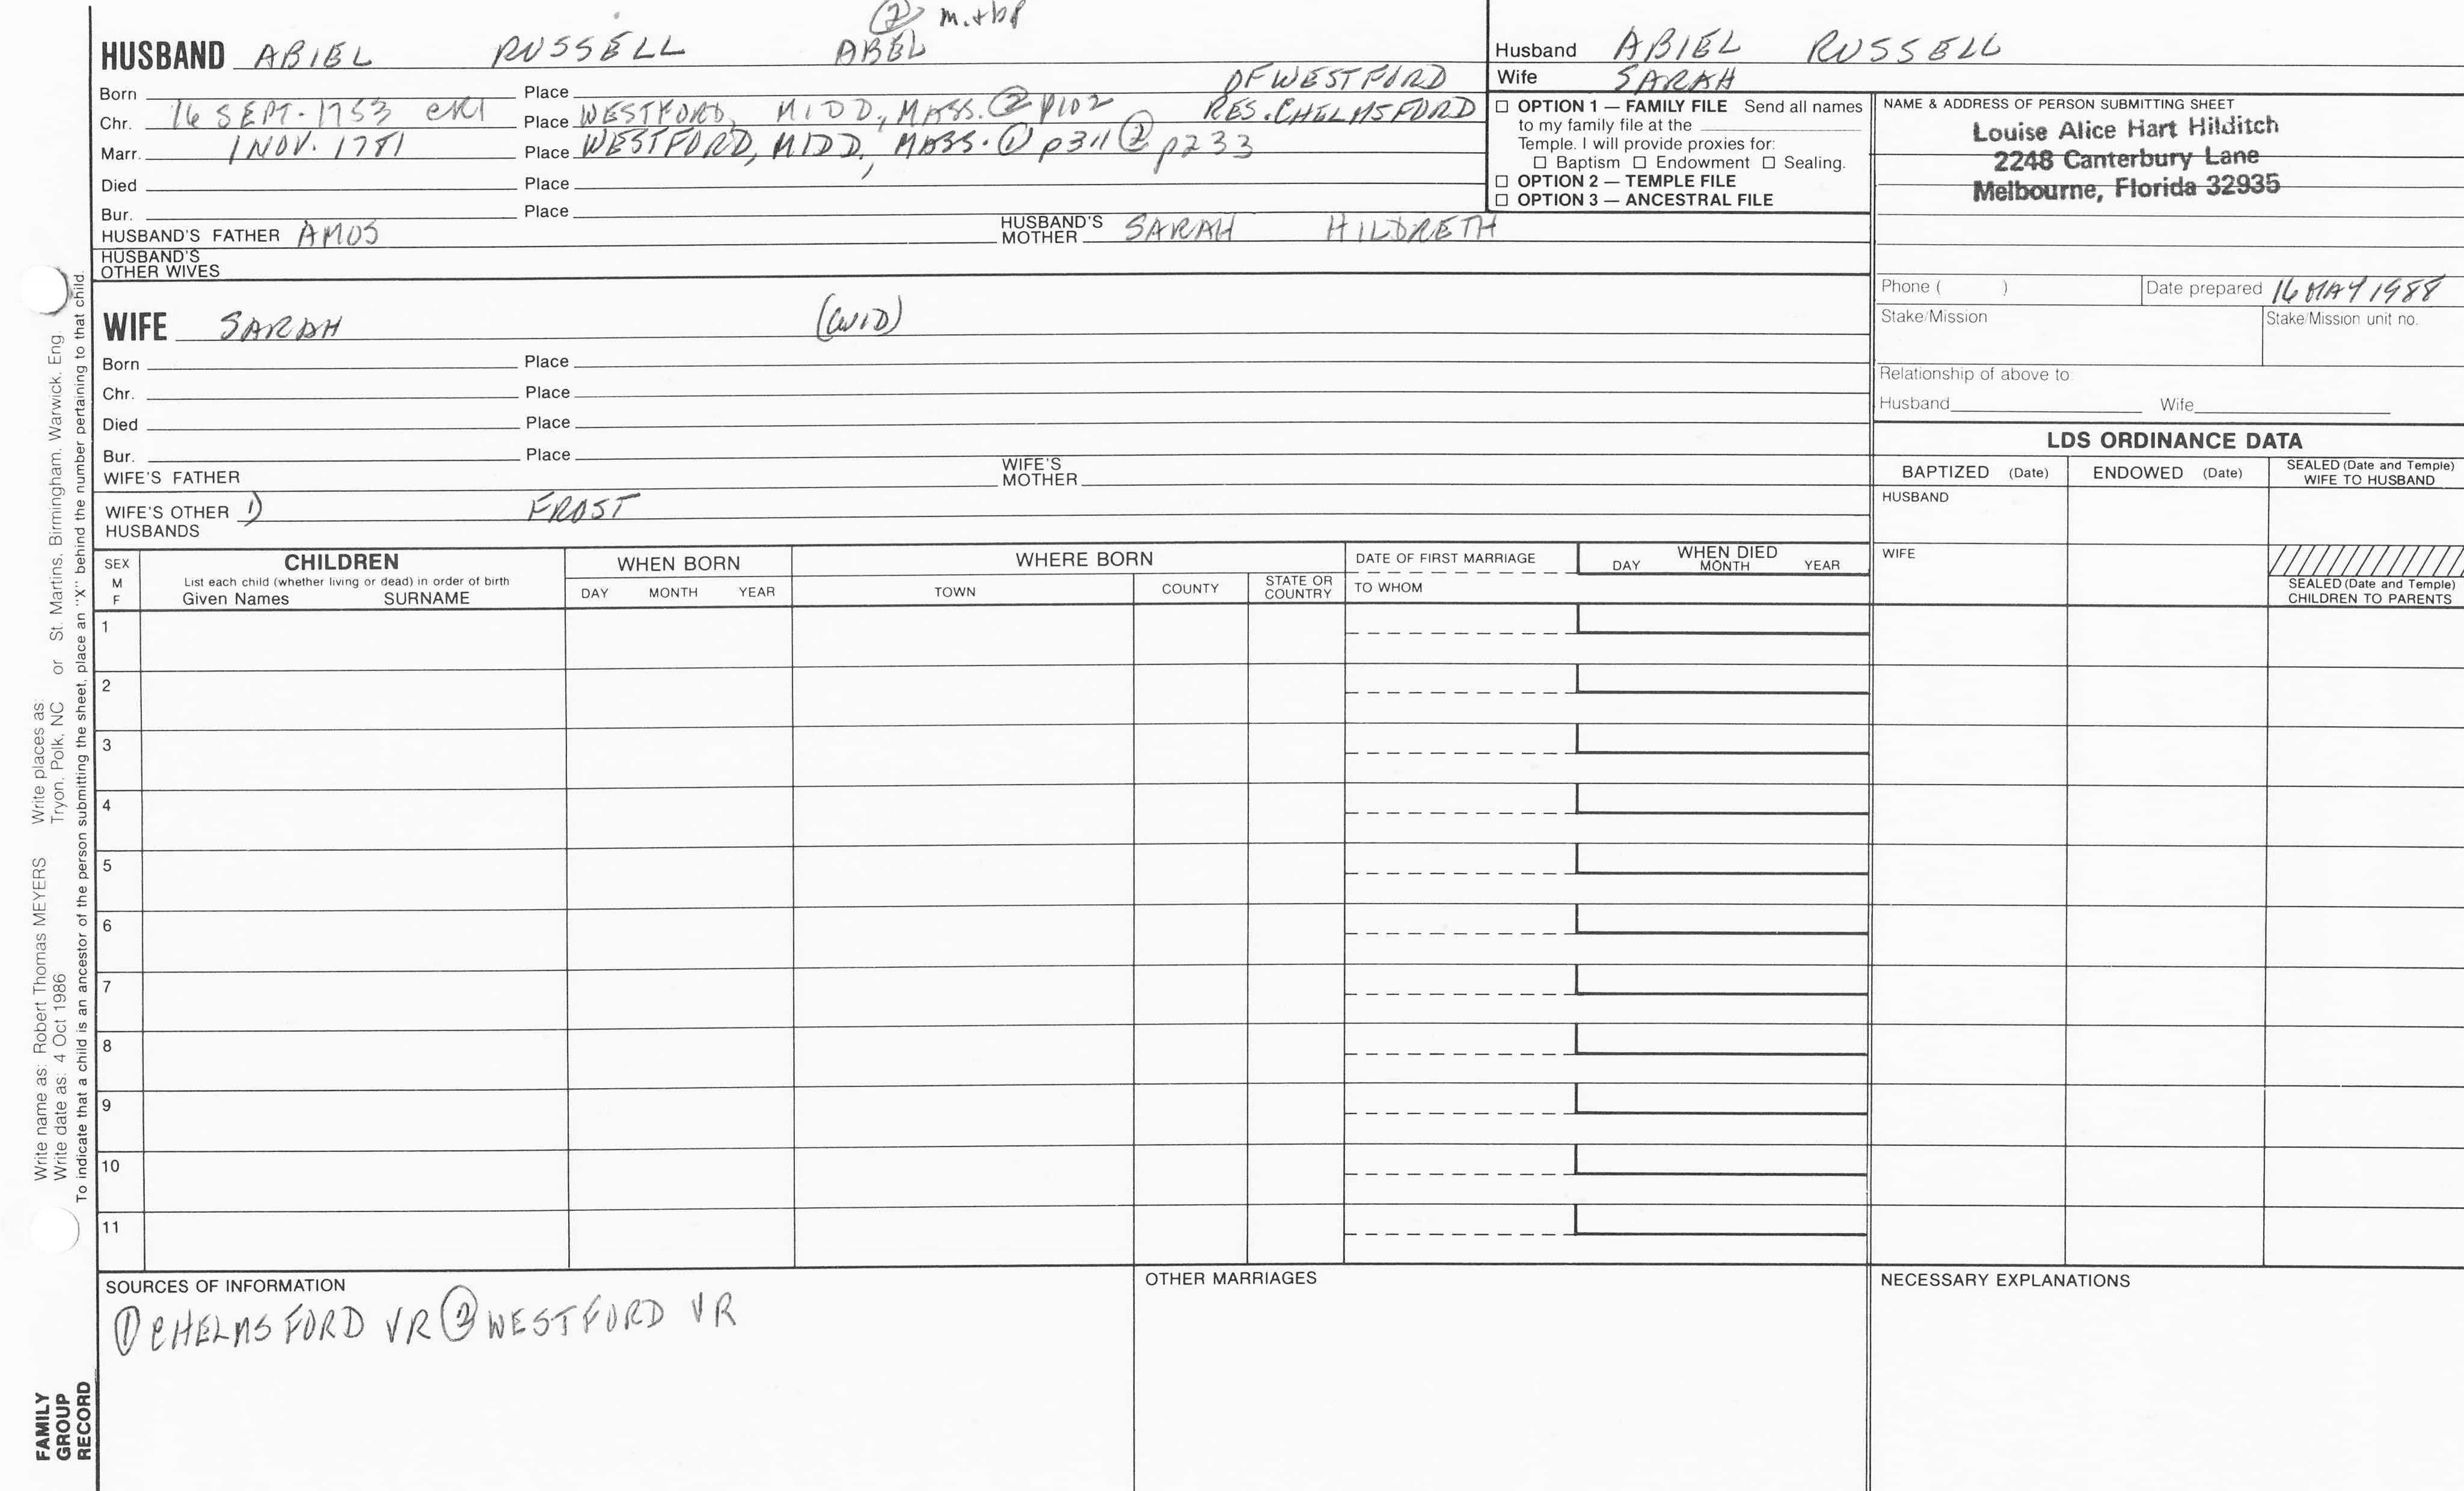 ② m.+bp
HUSBAND ABIEL RUSSELL ABEL
Born Place OF WESTFORD
Chr. 16 SEPT. 1753 CR1 Place WESTFORD, MIDD., MASS. ② p102 RES. CHELMSFORD
Marr. 1 NOV. 1781 Place WESTFORD, MIDD, MASS. ① p311 ② p233
Died Place
Bur. Place
HUSBAND'S FATHER AMOS HUSBAND'S MOTHER SARAH HILDRETH
HUSBAND'S OTHER WIVES
WIFE SARAH (WID)
Born Place
Chr. Place
Died Place
Bur. Place
WIFE'S FATHER WIFE'S MOTHER
WIFE'S OTHER HUSBANDS 1) FROST
Husband ABIEL RUSSELL
Wife SARAH
☐ OPTION 1 — FAMILY FILE Send all names
to my family file at the
Temple. I will provide proxies for:
☐ Baptism ☐ Endowment ☐ Sealing.
☐ OPTION 2 — TEMPLE FILE
☐ OPTION 3 — ANCESTRAL FILE
NAME & ADDRESS OF PERSON SUBMITTING SHEET
Louise Alice Hart Hilditch
2248 Canterbury Lane
Melbourne, Florida 32935
Phone ( ) Date prepared 16 MAY 1988
Stake/Mission Stake/Mission unit no.
Relationship of above to:
Husband Wife
LDS ORDINANCE DATA
BAPTIZED (Date) ENDOWED (Date) SEALED (Date and Temple) WIFE TO HUSBAND
HUSBAND
WIFE
SEALED (Date and Temple)
CHILDREN TO PARENTS
SEX M F
CHILDREN
List each child (whether living or dead) in order of birth
Given Names SURNAME
WHEN BORN
DAY MONTH YEAR
WHERE BORN
TOWN COUNTY STATE OR COUNTRY
DATE OF FIRST MARRIAGE
TO WHOM
WHEN DIED
DAY MONTH YEAR
1
2
3
4
5
6
7
8
9
10
11
SOURCES OF INFORMATION
① CHELMSFORD VR ② WESTFORD VR
OTHER MARRIAGES
NECESSARY EXPLANATIONS
Write name as: Robert Thomas MEYERS Write places as:
Write date as: 4 Oct 1986 Tryon, Polk, NC or St. Martins, Birmingham, Warwick, Eng.
To indicate that a child is an ancestor of the person submitting the sheet, place an "X" behind the number pertaining to that child.
FAMILY
GROUP
RECORD